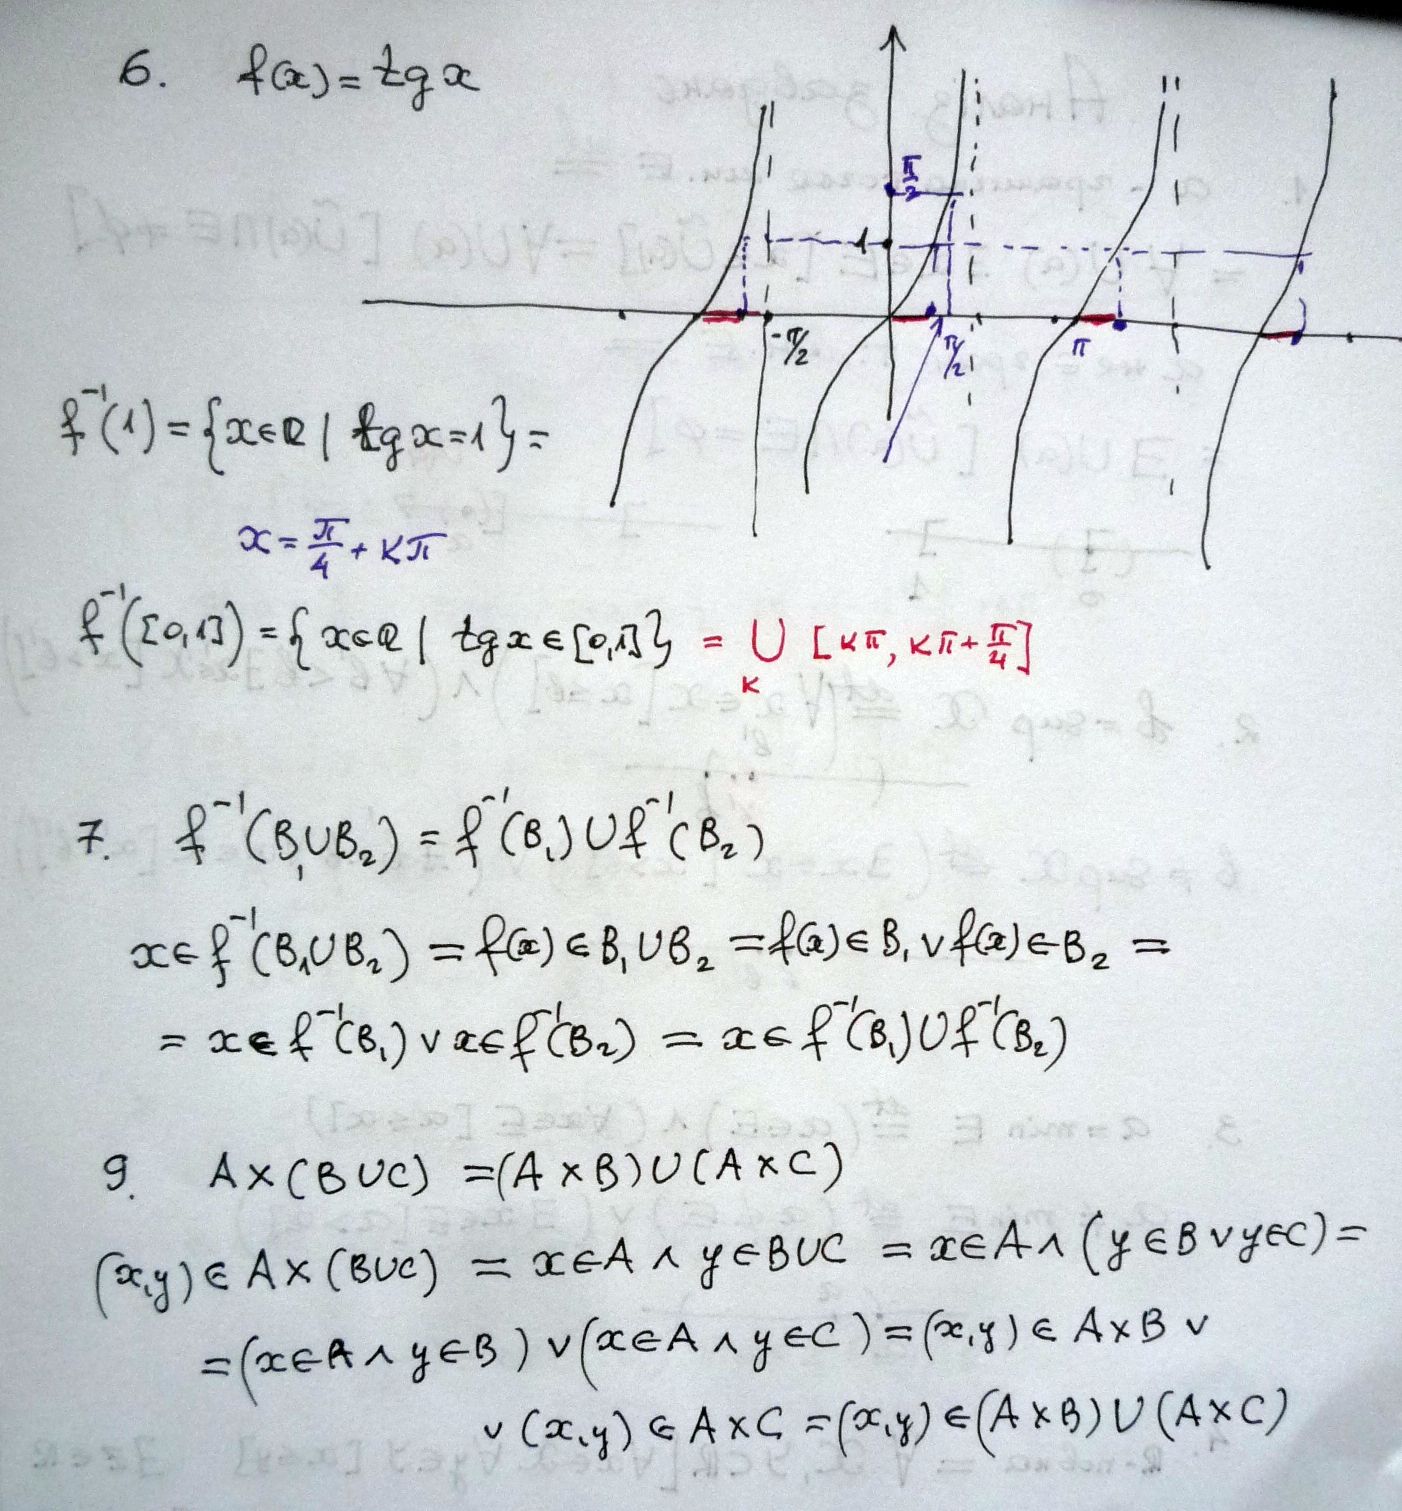 6. f(x) = tg x
π/2
1
-π/2
π/2
π
f⁻¹(1) = {x∈R | tg x = 1} =
x = π/4 + kπ
f⁻¹([0,1]) = {x∈R | tg x ∈ [0,1]} = ∪ [kπ, kπ + π/4]
k
7. f⁻¹(B₁∪B₂) = f⁻¹(B₁) ∪ f⁻¹(B₂)
x∈f⁻¹(B₁∪B₂) = f(x) ∈ B₁∪B₂ = f(x)∈B₁ ∨ f(x)∈B₂ =
= x∈f⁻¹(B₁) ∨ x∈f⁻¹(B₂) = x∈f⁻¹(B₁)∪f⁻¹(B₂)
9. A×(B∪C) = (A×B)∪(A×C)
(x,y) ∈ A×(B∪C) = x∈A ∧ y∈B∪C = x∈A ∧ (y∈B ∨ y∈C) =
= (x∈A ∧ y∈B) ∨ (x∈A ∧ y∈C) = (x,y) ∈ A×B ∨
∨ (x,y) ∈ A×C = (x,y) ∈ (A×B)∪(A×C)